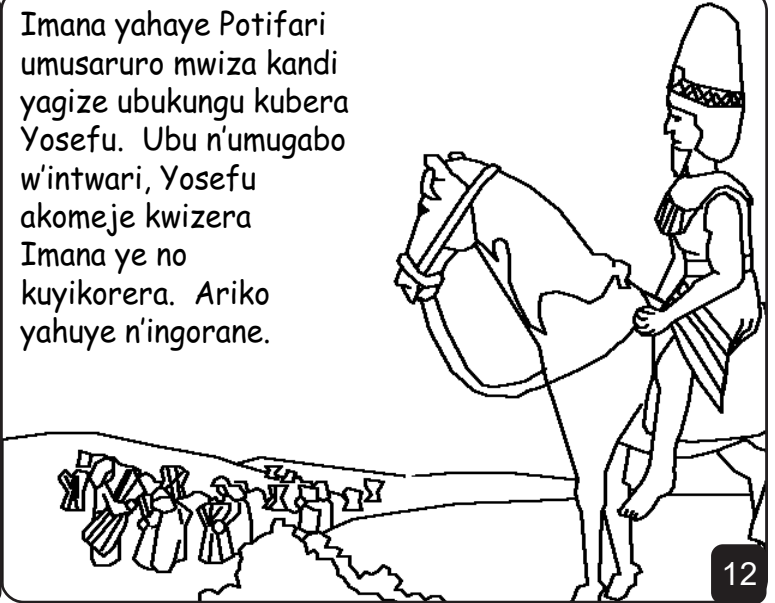 Imana yahaye Potifari
umusaruro mwiza kandi
yagize ubukungu kubera
Yosefu.  Ubu n'umugabo
w'intwari, Yosefu
akomeje kwizera
Imana ye no
kuyikorera.  Ariko
yahuye n'ingorane.
12